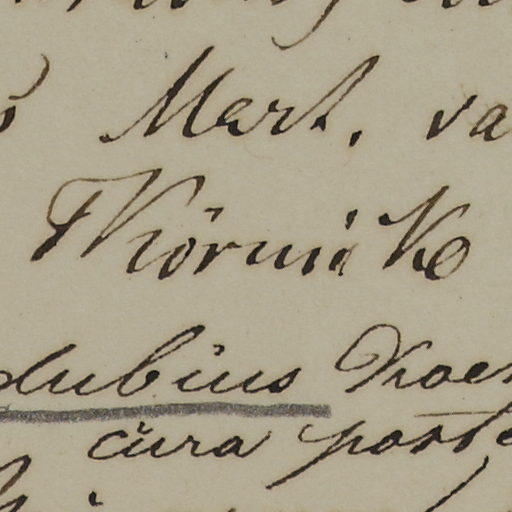 Mart. va
Körnicke
dubius Koer
cura poste